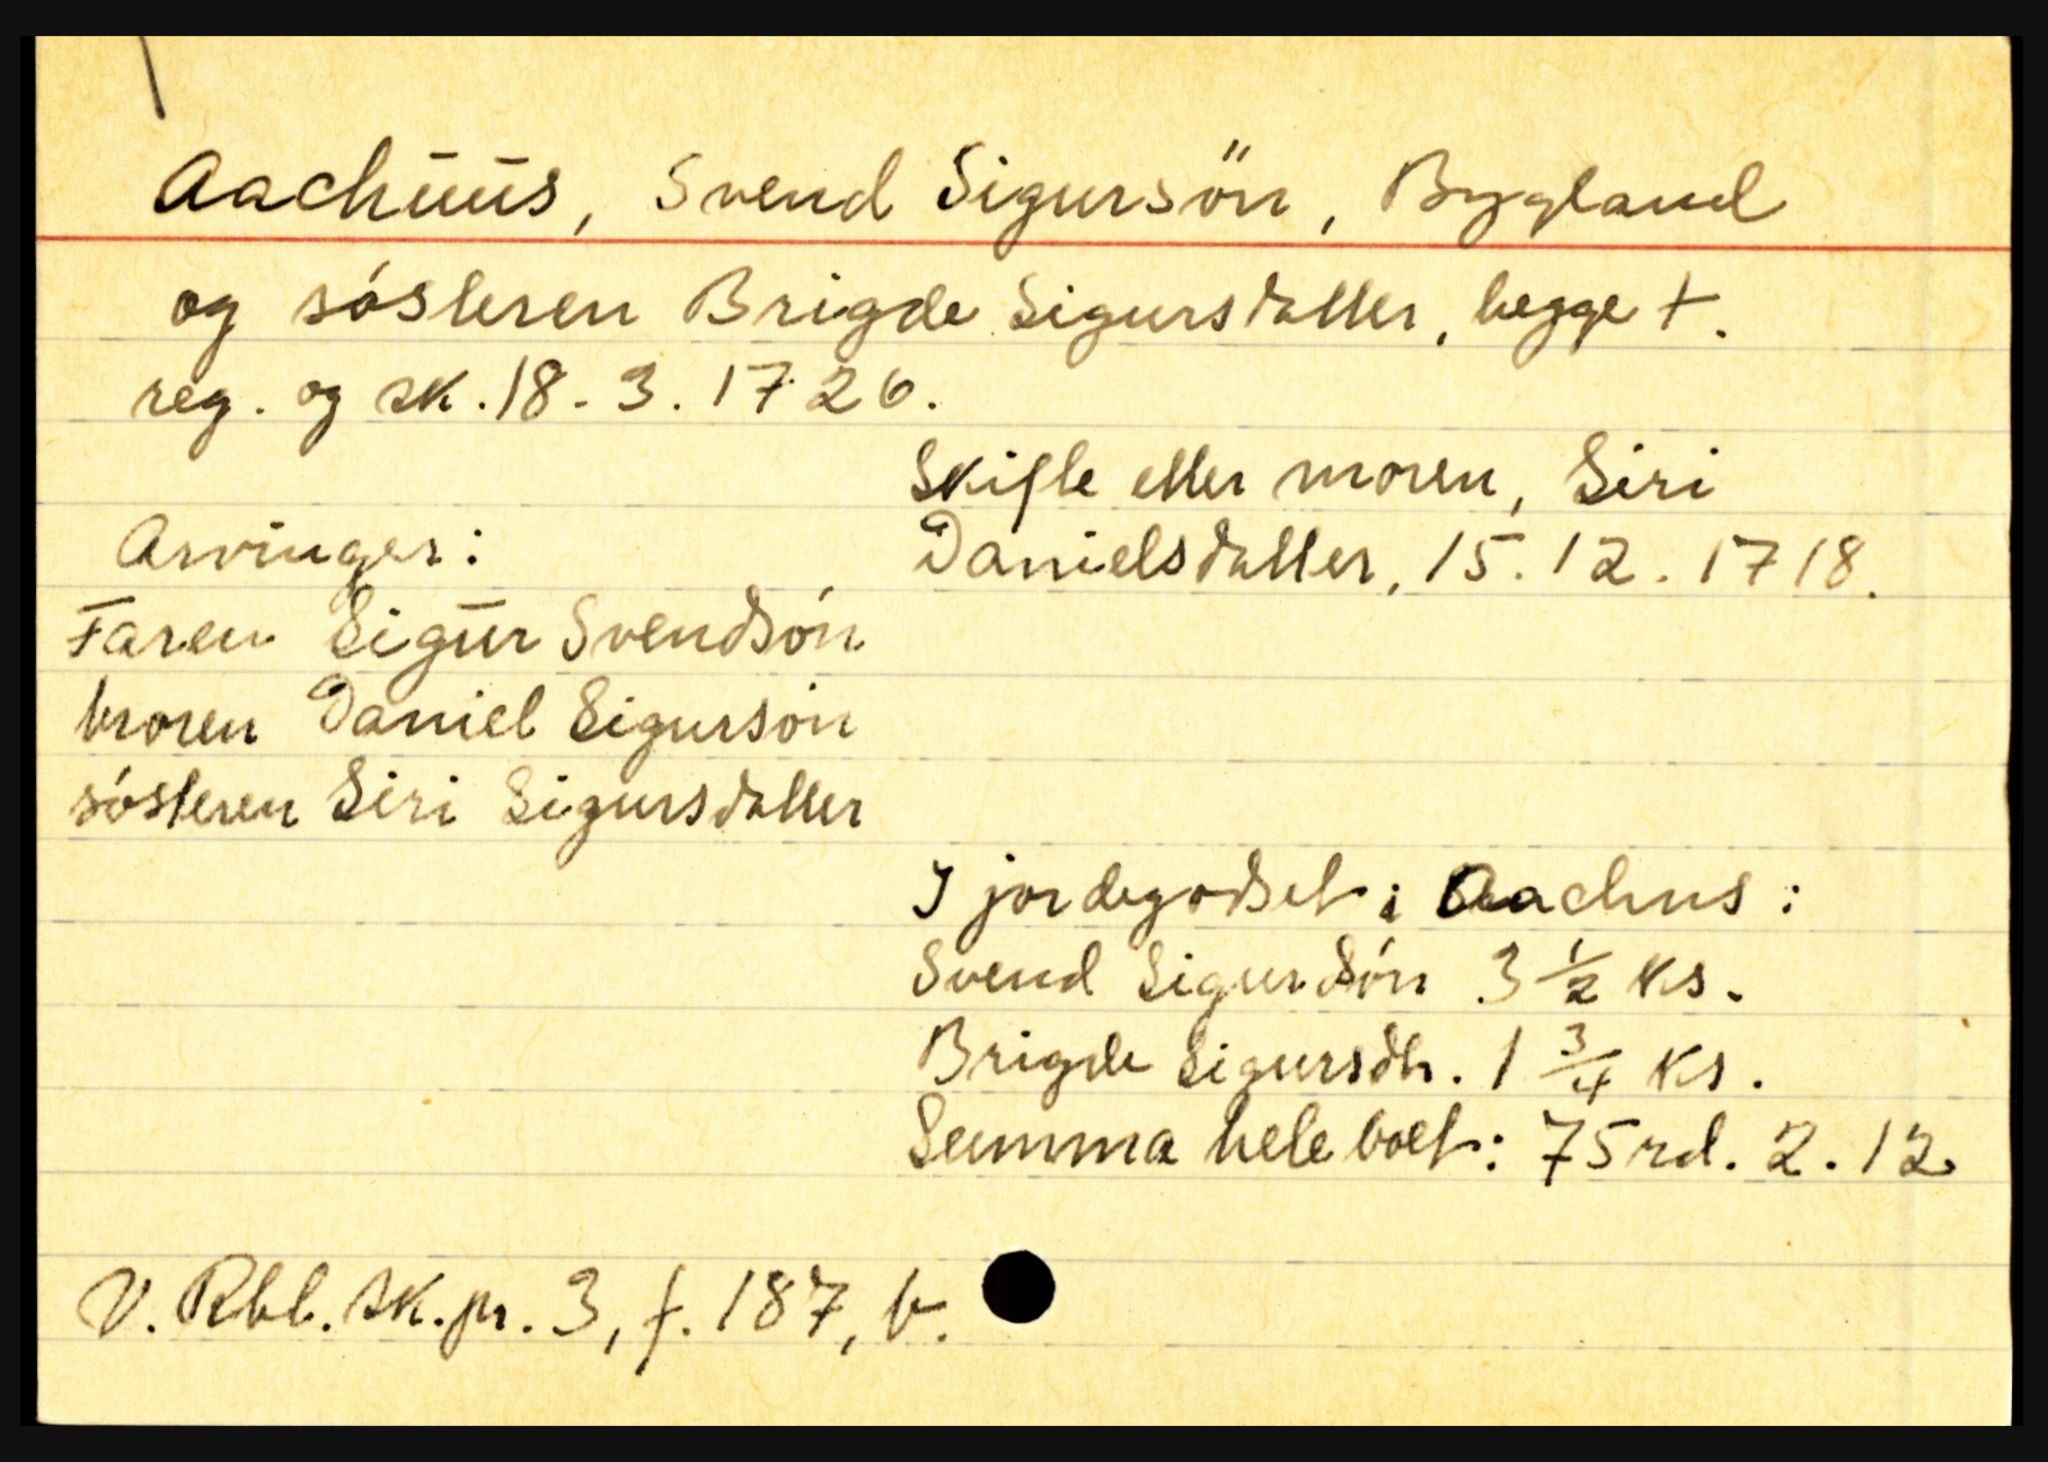 Aachūūs, Svend Sigursön, Bygland
og sósteren Brigde Sigursdatter, begge †.
reg. og sk. 18. 3. 1726.
Skifte etter moren, Siri
Danielsdatter, 15. 12. 1718.
Arvinger:
Faren Sigūr Svendsón
broren Daniel Sigursón
sósteren Siri Sigursdatter
I jordegodset i Aachus:
Svend Sigurdsón 3 1/2 ks.
Brigde Sigursdtr. 1 3/4 ks.
Summa hele boet: 75 rd. 2. 12
V. Rbl. sk. pr. 3, f. 187, b.